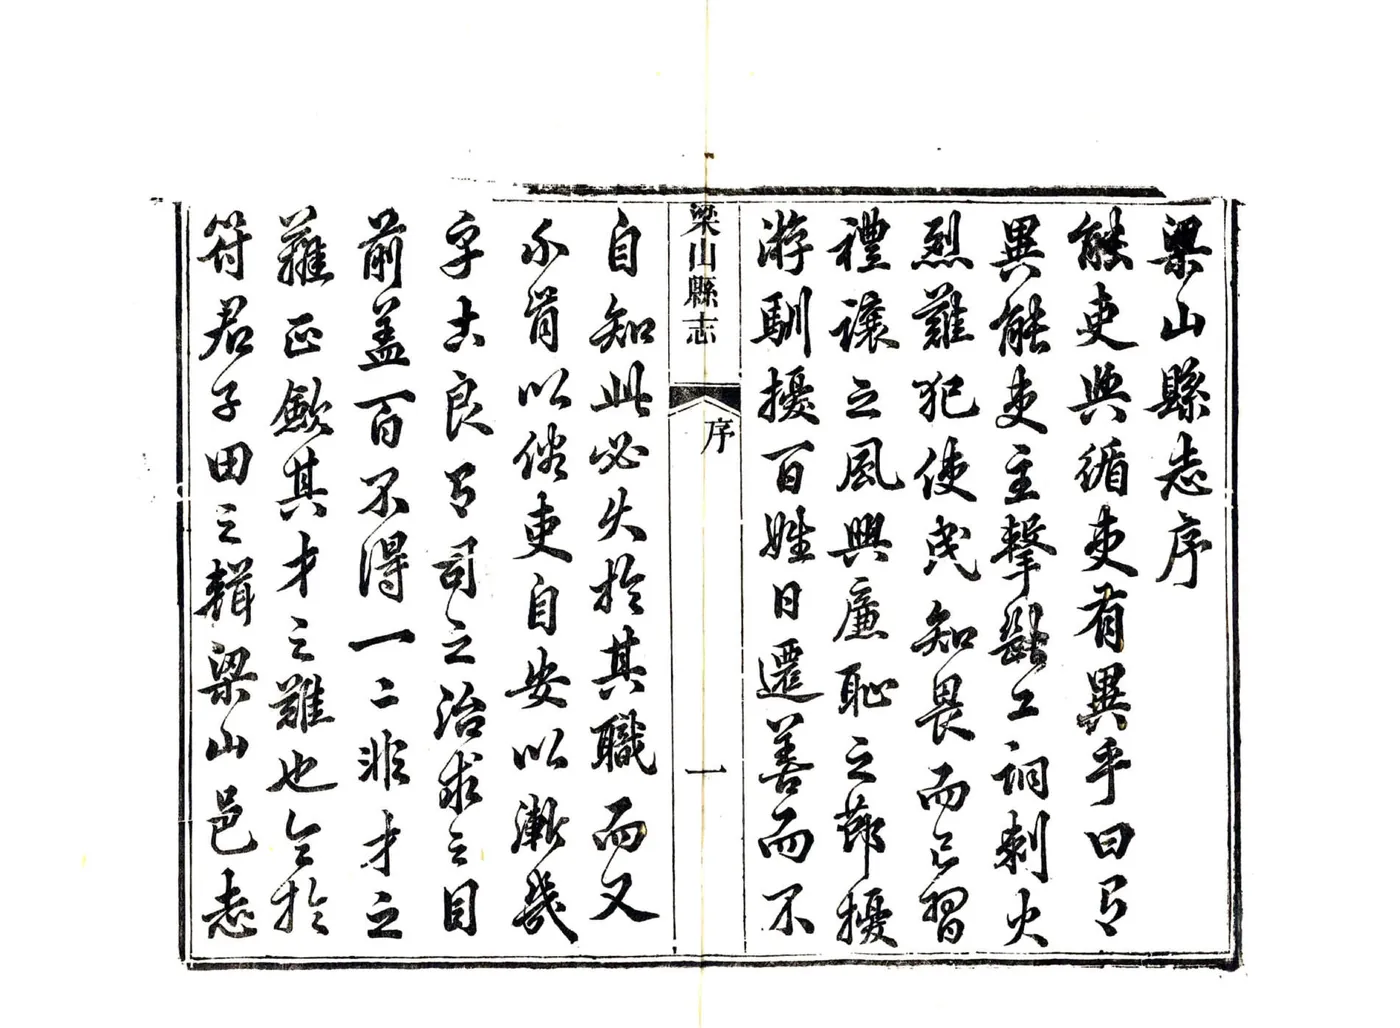 梁山縣志序
能吏與循吏有異乎曰有
異能吏主擊斷工詗刺火
烈難犯使民知畏而已習
禮讓之風興廉恥之節優
游馴擾百姓日遷善而不
梁山縣志
序
一
自知此必久於其職而又
不肯以俗吏自安以漸幾
乎古良有司之治求之目
前盖百不得一二非才之
難正斂其才之難也今於
符君子田之輯梁山邑志